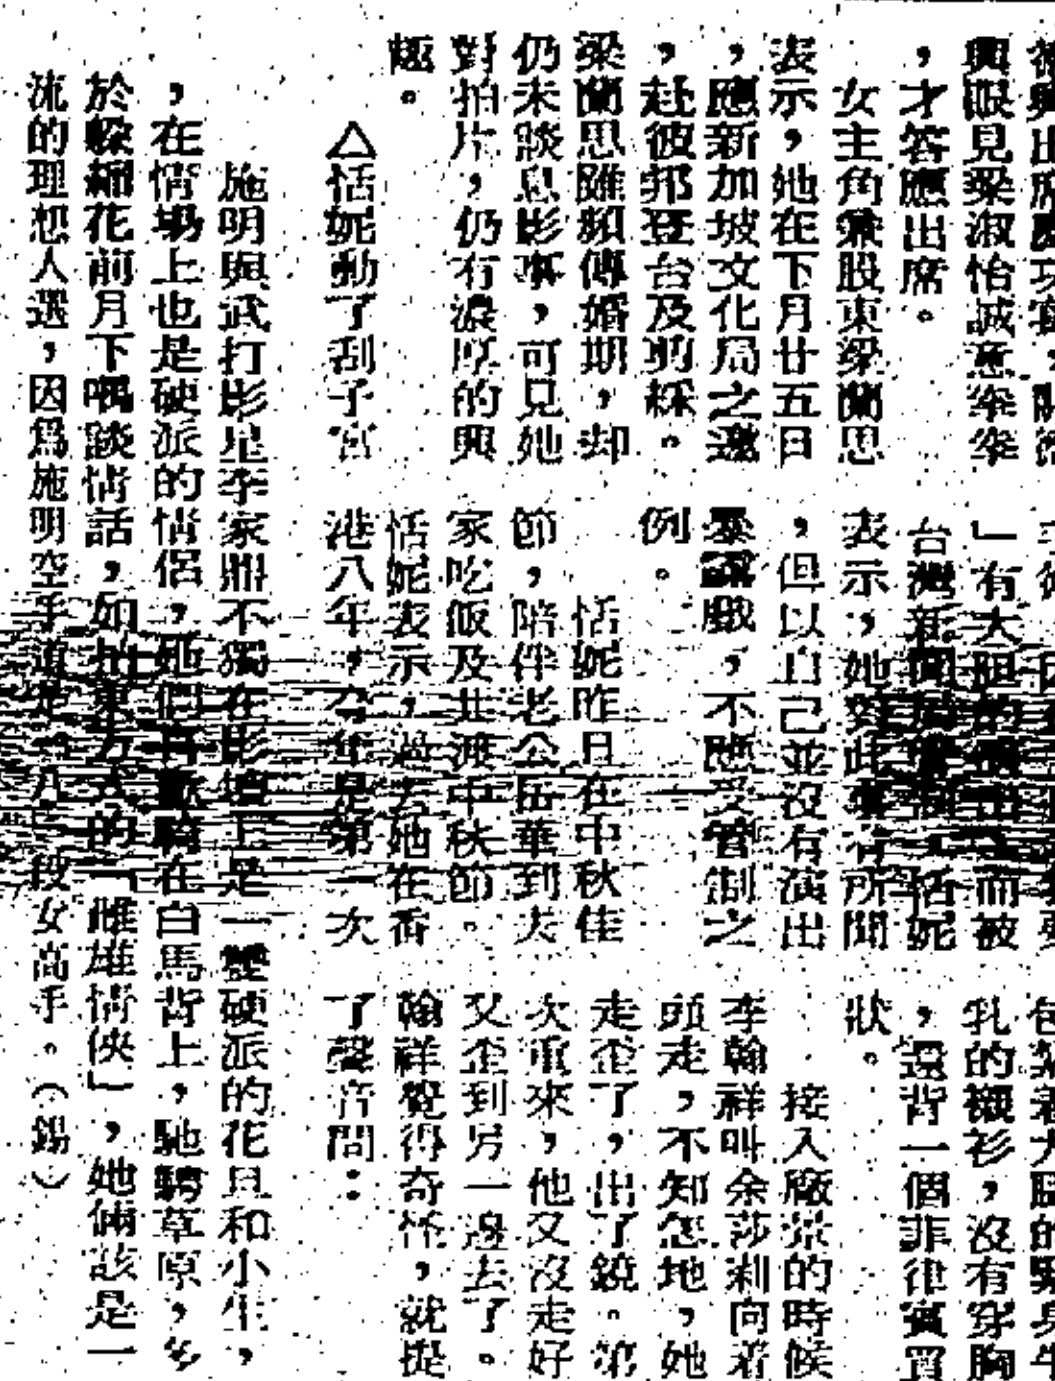 興眼見梁淑怡誠意拳拳
，才答應出席。
女主角兼股東梁蘭思
表示，她在下月廿五日
，應新加坡文化局之邀
，赴彼邦登台及剪綵。
梁蘭思雖頻傳婚期，却
仍未談息影事，可見她
對拍片，仍有濃厚的興
趣。
△恬妮動了刮子宮
」有大胆的演出而被
台灣新聞局
恬妮
表示，她對此事有所聞
，但以自己並沒有演出
暴露戲，不應受管制之
例。
恬妮昨日在中秋佳
節，陪伴老公岳華到夫
家吃飯及共渡中秋節。
恬妮表示，過去她在香
港八年，今年是第一次
乳的襯衫，沒有穿胸
，還背一個菲律賓買
狀。
接入廠景的時候
李翰祥叫余莎莉向着
頭走，不知怎地，她
走歪了，出了鏡。第
次重來，他又沒走好
又歪到另一邊去了。
翰祥覺得奇怪，就提
了聲音問：
施明與武打影星李家鼎不獨在影壇上是一雙硬派的花旦和小生，
，在情場上也是硬派的情侶，她們喜歡騎在白馬背上，馳騁草原，多
於躲綑花前月下喁談情話，如拍東方式的「雌雄情俠」，她倆該是一
流的理想人選，因爲施明空手道是八段女高手。（錫）